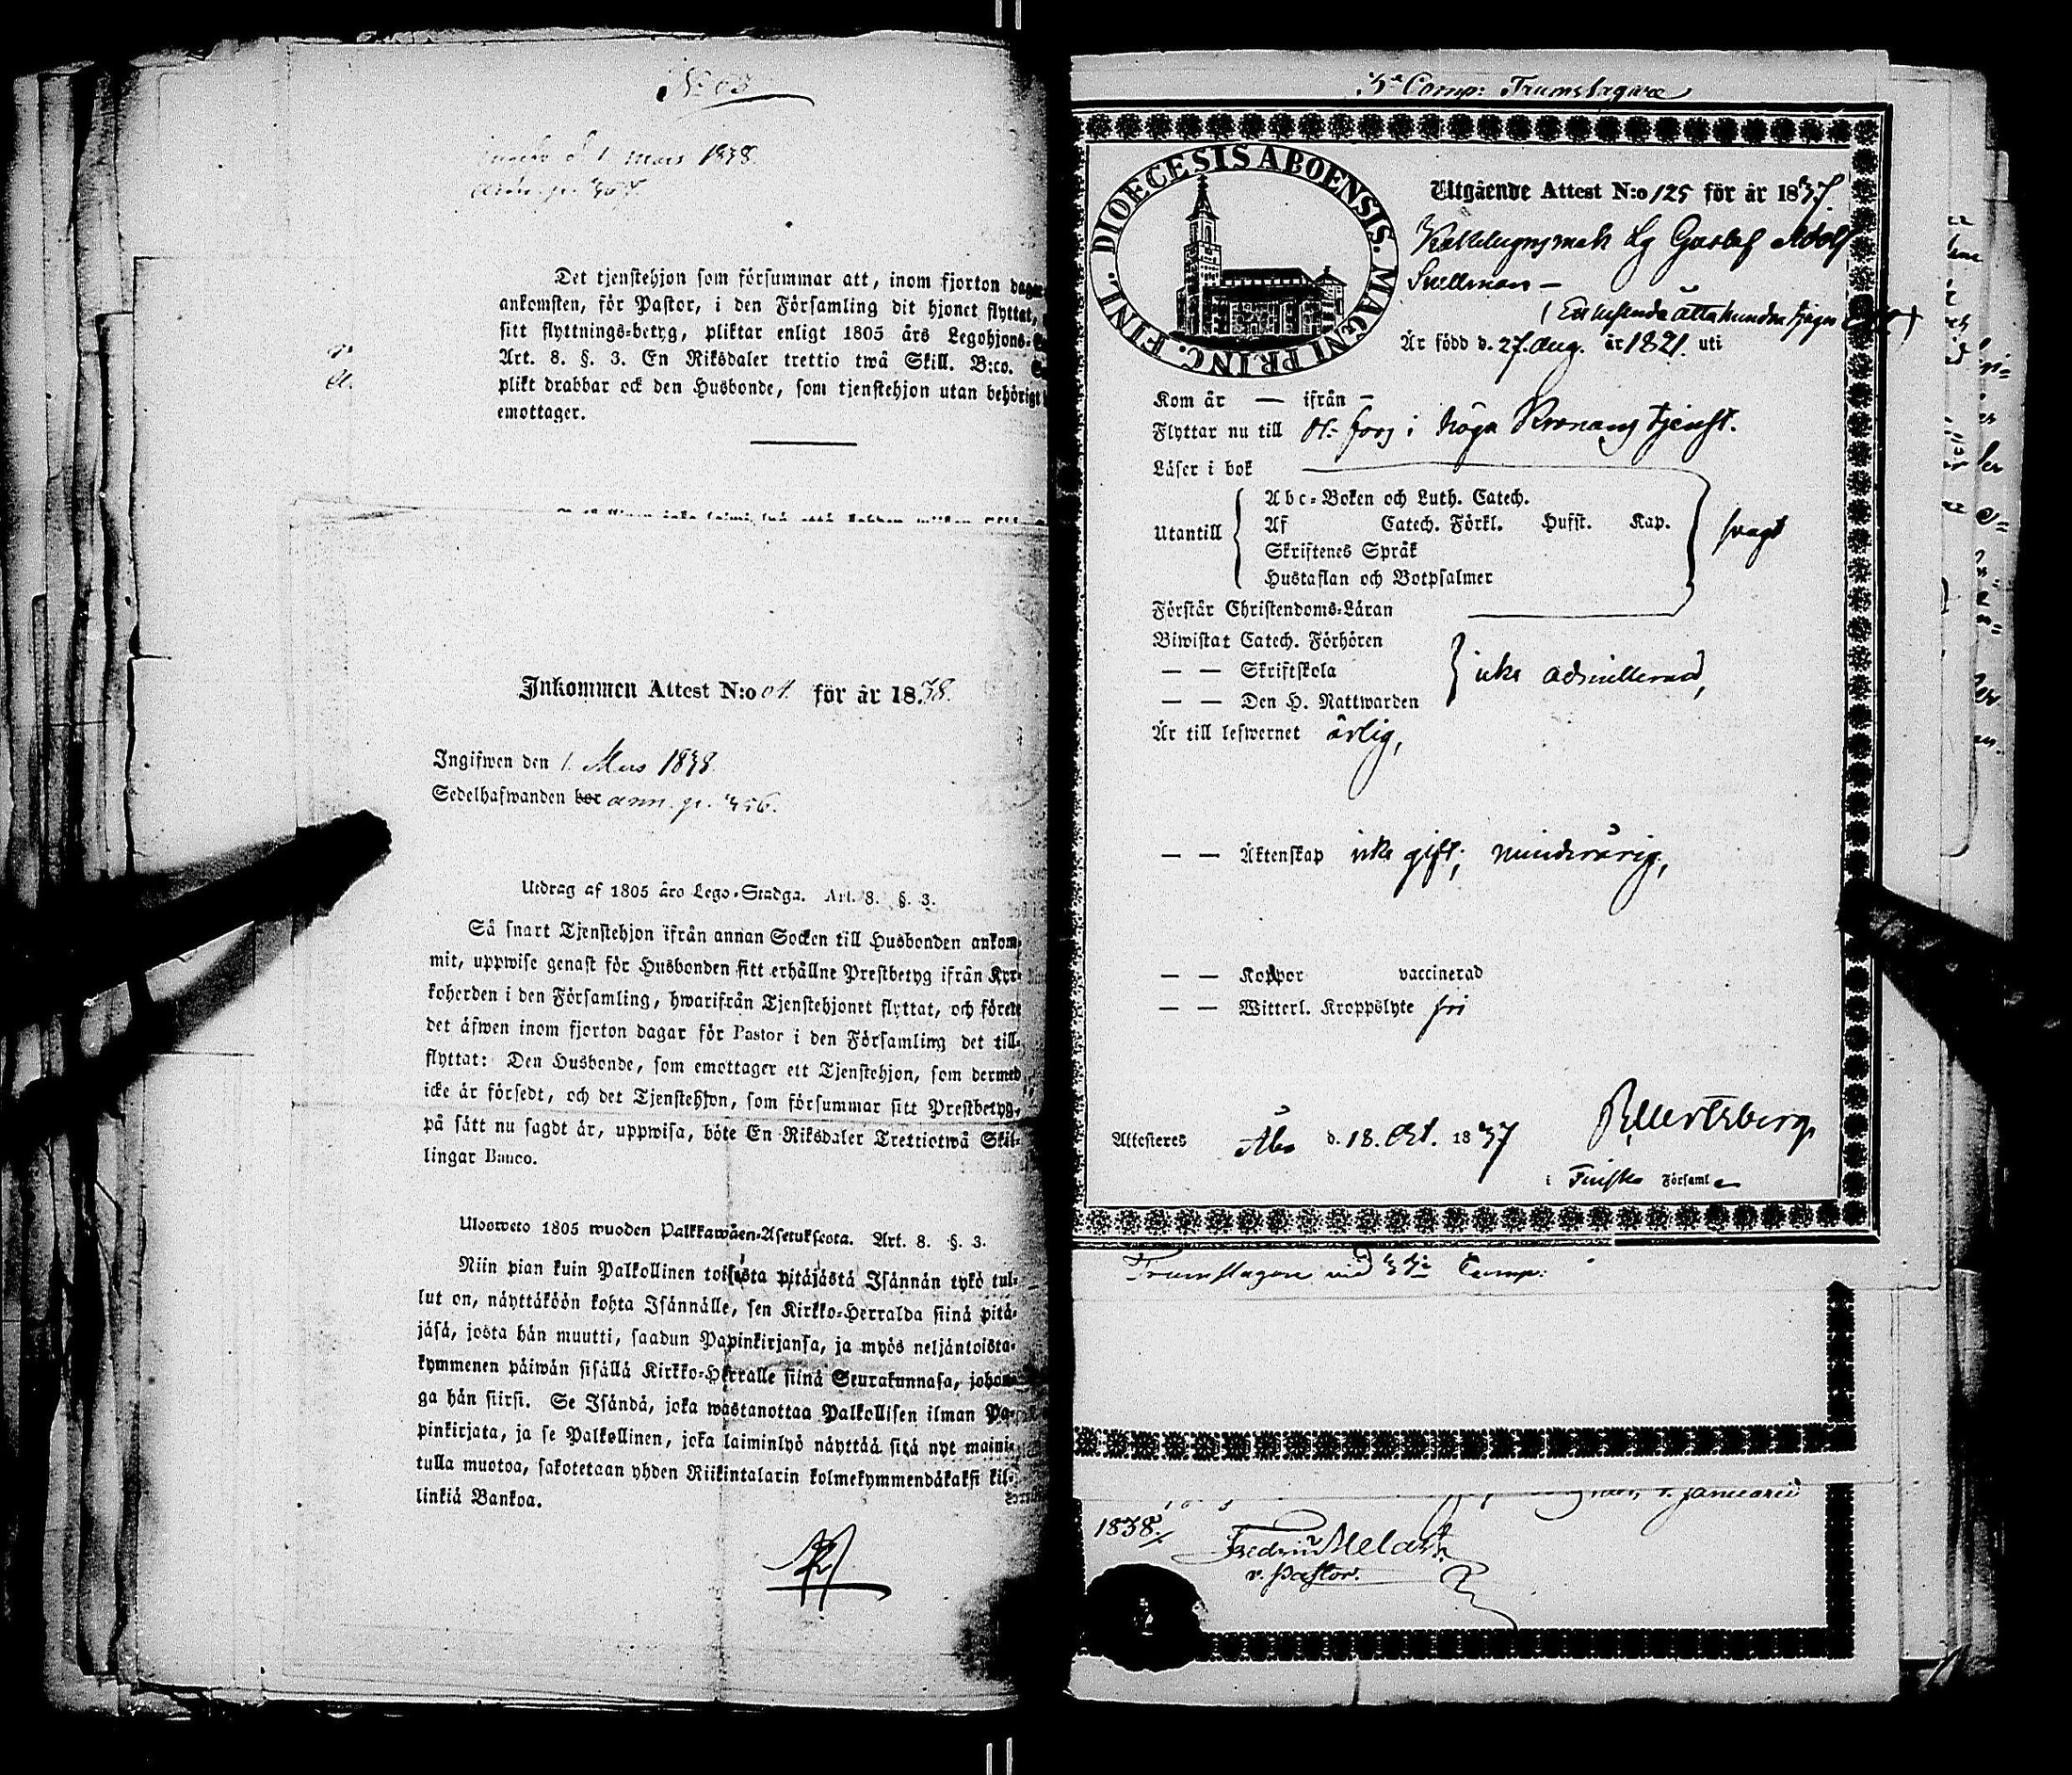 No 63
d 1 mars 1838.
Det tjenstehjon som försummar att, inom fjorton
ankomsten, för Pastor, i den Församling dit hjonet flyttat,
sitt flyttnings-betyg, pliktar enligt 1805 års Legohjons-
Art. 8. §. 3. En Riksdaler trettio twå Skill. B:co.
plikt drabbar ock den Husbonde, som tjenstehjon utan behörigt
emottager.
Inkommen Attest N:o 64 för år 1838.
Ingifwen den 1. Mars 1838
Sedelhafwanden bor ann. p. 356.
Utdrag af 1805 års Lego-Stadga. Art. 8. §. 3.
Så snart Tjenstehjon ifrån annan Socken till Husbonden ankom-
mit, uppwise genast för Husbonden sitt erhållne Prestbetyg ifrån Kyr-
koherden i den Församling, hwarifrån Tjenstehjonet flyttat, och förete
det äfwen inom fjorton dagar för Pastor i den Församling det till-
flyttat: Den Husbonde, som emottager ett Tjenstehjon, som dermed
icke är försedt, och det Tjenstehjon, som försummar sitt Prestbetyg,
på sätt nu sagdt är, uppwisa, böte En Riksdaler Trettiotwå Skil-
lingar Banco.
Ulosweto 1805 wuoden Palkkawäen-Asetuksesta. Art. 8. §. 3.
Niin pian kuin Palkollinen toisesta pitäjästä Isännän tykö tul-
lut on, näyttäköön kohta Isännälle, sen Kirkko-Herralda siinä pitä-
jäsä, josta hän muutti, saadun Papinkirjansa, ja myös neljäntoista-
kymmenen päiwän sisällä Kirkko-Herralle siinä Seurakunnasa, johon-
ga hän siirsi. Se Isändä, joka wastanottaa Palkollisen ilman Pa-
pinkirjata, ja se Palkollinen, joka laiminlyö näyttää sitä nyt maini-
tulla muotoa, sakotetaan yhden Riikintalarin kolmekymmendäkaksi kil-
linkiä Bankoa.
3e Comp: Trumslagare
DIOECESIS ABOENSIS. MAGNI PRINC. FINL.
Utgående Attest N:o 125 för år 1837.
Kakelugnsmak Lg Gustaf Adolf
Snellman —
(Ett tusende åttahundra tjugu
Är född d. 27. Aug. år 1821. uti
Kom år — ifrån —
Flyttar nu till H:fors i höga Kronans tjenst.
Läser i bok
Utantill
Abc-Boken och Luth. Catech.
Af Catech. Förkl. Hufst. Kap.
Skriftenes Språk
Hustaflan och Botpsalmer
svagt
Förstår Christendoms-Läran
Biwistat Catech. Förhören
— — Skriftskola
— — Den H. Nattwarden
icke admitterad,
Är till lefwernet ärlig,
— — Äktenskap icke gift, minderårig,
— — Koppor vaccinerad
— — Witterl. Kroppslyte fri
Attesteras Åbo d. 18. Oct. 1837
i Finska Församl
Trumslagare vid 3dje Comp:
Januarii
1838.
v. Pastor.